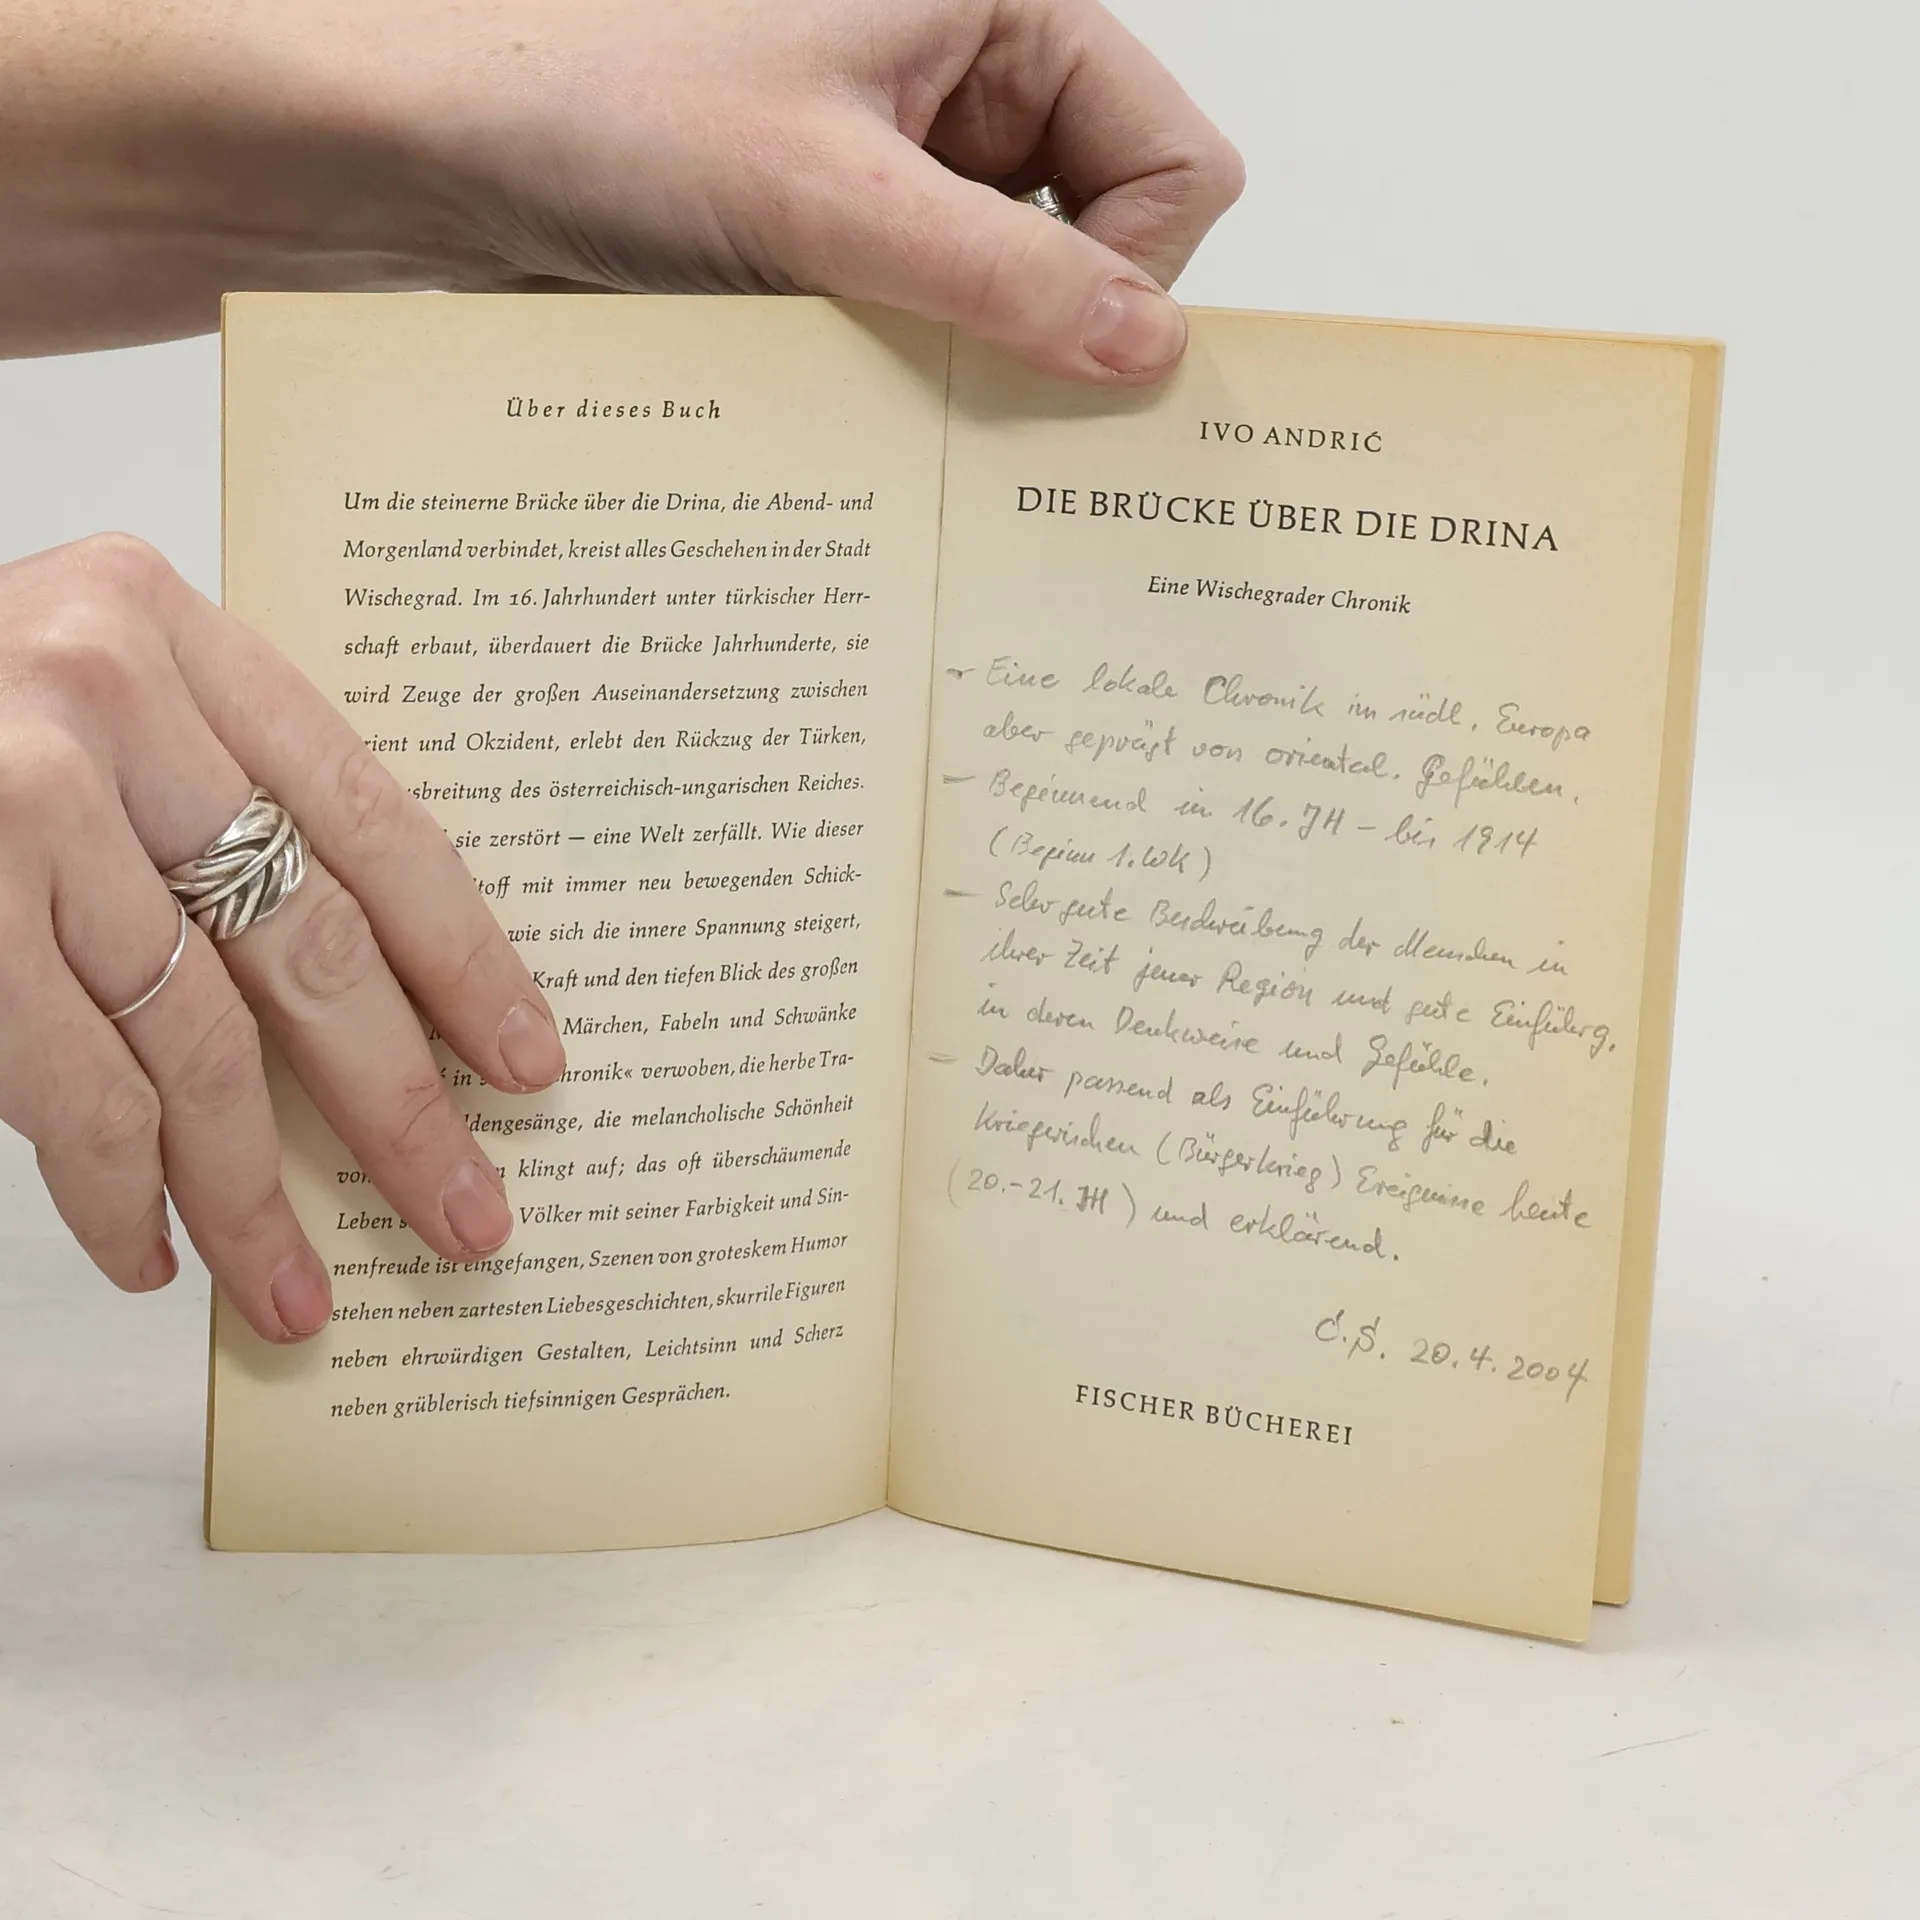 Über dieses Buch
Um die steinerne Brücke über die Drina, die Abend- und
Morgenland verbindet, kreist alles Geschehen in der Stadt
Wischegrad. Im 16. Jahrhundert unter türkischer Herr-
schaft erbaut, überdauert die Brücke Jahrhunderte, sie
wird Zeuge der großen Auseinandersetzung zwischen
und Okzident, erlebt den Rückzug der Türken,
des österreichisch-ungarischen Reiches.
sie zerstört — eine Welt zerfällt. Wie dieser
mit immer neu bewegenden Schick-
wie sich die innere Spannung steigert,
Kraft und den tiefen Blick des großen
Märchen, Fabeln und Schwänke
in verwoben, die herbe Tra-
die melancholische Schönheit
klingt auf; das oft überschäumende
Leben Völker mit seiner Farbigkeit und Sin-
nenfreude ist eingefangen, Szenen von groteskem Humor
stehen neben zartesten Liebesgeschichten, skurrile Figuren
neben ehrwürdigen Gestalten, Leichtsinn und Scherz
neben grüblerisch tiefsinnigen Gesprächen.
IVO ANDRIĆ
DIE BRÜCKE ÜBER DIE DRINA
Eine Wischegrader Chronik
- Eine lokale Chronik im südl. Europa
aber geprägt von oriental. Gefühlen.
- Beginnend im 16. JH - bis 1914
(Beginn 1. WK)
- Sehr gute Beschreibung der Menschen in
ihrer Zeit jener Region und gute Einführg.
in deren Denkweise und Gefühle.
- Daher passend als Einführung für die
Kriegerischen (Bürgerkrieg) Ereignisse heute
(20.-21. JH) und erklärend.
20.4.2004
FISCHER BÜCHEREI